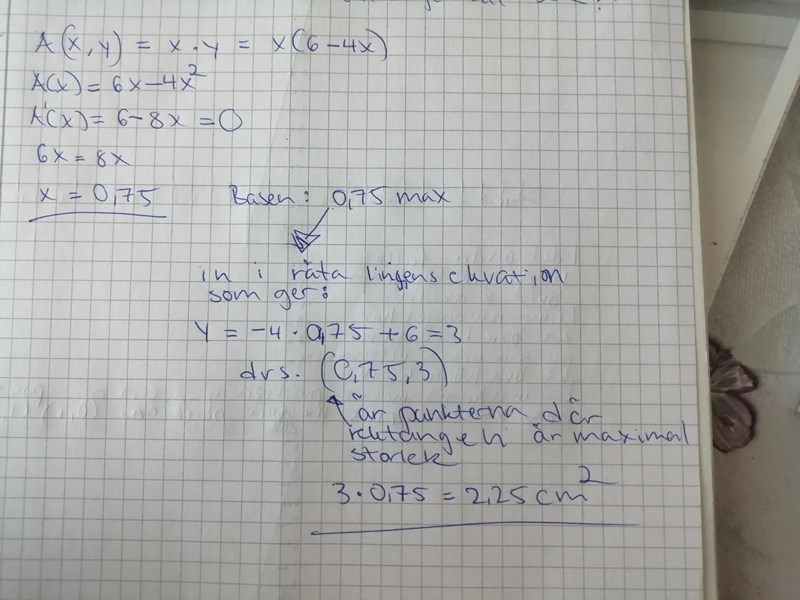 A(x,y) = x·y = x(6-4x)
A(x) = 6x-4x²
A'(x) = 6-8x = 0
6x = 8x
x = 0,75 Basen: 0,75 max
in i räta linjens ekvation
som ger:
y = -4·0,75 + 6 = 3
dvs. (0,75, 3)
är punkterna där
rektangeln är maximal
storlek
3·0,75 = 2,25 cm²